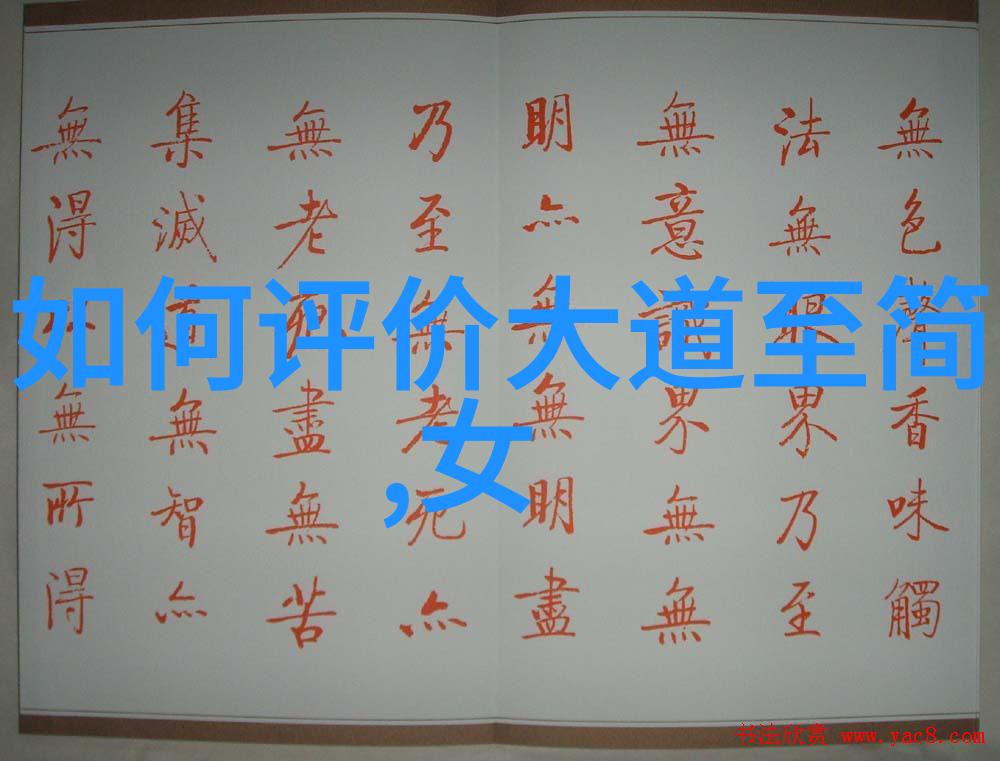 如何评价大道至简
,女
無色聲香味觸
法無眼界乃至
無意識界無無
明亦無無明盡
乃至無老死亦
無老死盡無苦
集滅道無智亦
無得以無所得
书法欣赏 www.yac8.com